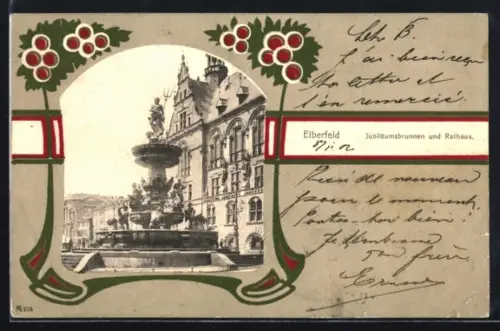 Cher B.
J'ai bien reçu
ta lettre et
t'en remercie.
Elberfeld
Jubiläumsbrunnen und Rathaus.
Rien de nouveau
pour le moment
Portes-toi bien!
Je t'embrasse
ton frère
Ernest